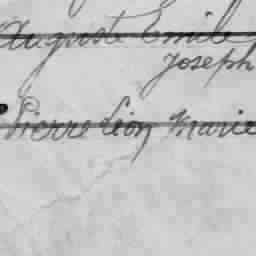 Auguste Emile
Joseph
Pierre Léon Marie